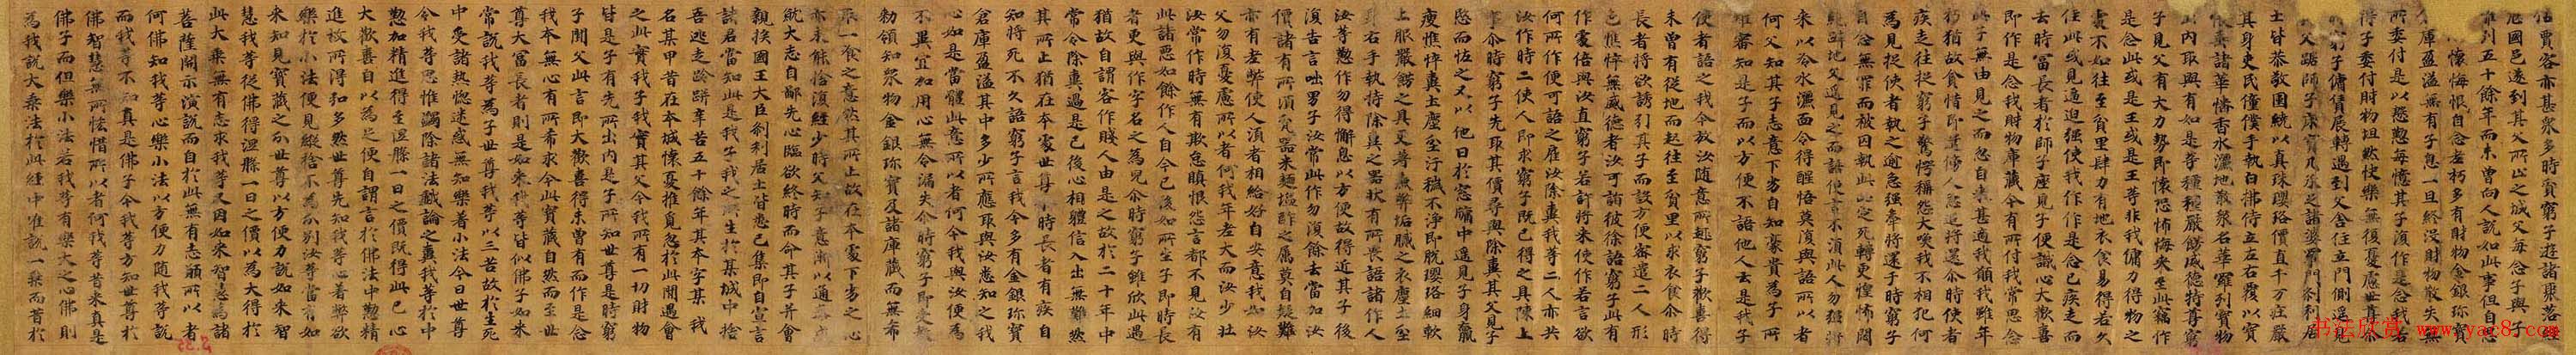 估賈客亦甚眾多時貧窮子遊諸聚落經
國邑遂到其父所止之城父每念子與子
離別五十餘年而未曾向人說如此事但自思
懷悔恨自念老朽多有財物金銀珍寶
庫盈溢無有子息一旦終沒財物散失無
所委付是以慇懃每憶其子復作是念我若
得子委付財物坦然快樂無復憂慮世尊尒
窮子傭賃展轉遇到父舍住立門側遙見
父踞師子床寶几承足諸婆羅門剎利居
士皆恭敬圍繞以真珠瓔珞價直千万莊嚴
其身吏民僮僕手執白拂侍立左右覆以寶
帳垂諸華幡香水灑地散眾名華羅列寶物
出內取與有如是等種種嚴飾威德特尊窮
子見父有大力勢即懷恐怖悔來至此竊作
是念此或是王或是王等非我傭力得物之
處不如往至貧里肆力有地衣食易得若久
住此或見逼迫強使我作作是念已疾走而
去時富長者於師子座見子便識心大歡喜
即作是念我財物庫藏今有所付我常思念
此子無由見之而忽自來甚適我願我雖年
朽猶故貪惜即遣傍人急追將還尒時使者
疾走往捉窮子驚愕稱怨大喚我不相犯何
為見捉使者執之逾急強牽將還于時窮子
自念無罪而被囚執此必定死轉更惶怖悶
絕躃地父遙見之而語使言不須此人勿強將
來以冷水灑面令得醒悟莫復與語所以者
何父知其子志意下劣自知豪貴為子所
難審知是子而以方便不語他人云是我子
使者語之我今放汝隨意所趣窮子歡喜得
未曾有從地而起往至貧里以求衣食尒時
長者將欲誘引其子而設方便密遣二人形
色憔悴無威德者汝可詣彼徐語窮子此有
作處倍與汝直窮子若許將來使作若言欲
何所作便可語之雇汝除糞我等二人亦共
汝作時二使人即求窮子既已得之具陳上
事尒時窮子先取其價尋與除糞其父見子
愍而怪之又以他日於窓牖中遙見子身羸
瘦憔悴糞土塵坌汙穢不淨即脫瓔珞細軟
上服嚴飾之具更著麁弊垢膩之衣塵土坌
身右手執持除糞之器狀有所畏語諸作人
汝等勤作勿得懈息以方便故得近其子後
復告言咄男子汝常此作勿復餘去當加汝
價諸有所須瓫器米麵塩酢之屬莫自疑難
亦有老弊使人須者相給好自安意我如汝
父勿復憂慮所以者何我年老大而汝少壯
汝常作時無有欺怠瞋恨怨言都不見汝有
此諸惡如餘作人自今已後如所生子即時長
者更與作字名之為兒尒時窮子雖欣此遇
猶故自謂客作賤人由是之故於二十年中
常令除糞過是已後心相體信入出無難然
其所止猶在本處世尊尒時長者有疾自
知將死不久語窮子言我今多有金銀珍寶
倉庫盈溢其中多少所應取與汝悉知之我
心如是當體此意所以者何今我與汝便為
不異宜加用心無令漏失尒時窮子即受教
勅領知眾物金銀珍寶及諸庫藏而無希
取一飡之意然其所止故在本處下劣之心
亦未能捨復經少時父知子意漸以通泰成
就大志自鄙先心臨欲終時而命其子并會
親族國王大臣剎利居士皆悉已集即自宣言
諸君當知此是我子我之所生於某城中捨
吾逃走伶俜辛苦五十餘年其本字某我
名某甲昔在本城懷憂推覓忽於此間遇會
之此實我子我實其父今我所有一切財物
皆是子有先所出內是子所知世尊是時窮
子聞父此言即大歡喜得未曾有而作是念
我本無心有所希求今此寶藏自然而至世
尊大富長者則是如來我等皆似佛子如來
常說我等為子世尊我等以三苦故於生死
中受諸熱惱迷惑無知樂著小法今日世尊
令我等思惟蠲除諸法戲論之糞我等於中
懃加精進得至涅槃一日之價既得此已心
大歡喜自以為足便自謂言於佛法中懃精
進故所得弘多然世尊先知我等心著弊欲
樂於小法便見縱捨不為分別汝等當有如
來知見寶藏之分世尊以方便力說如來智
慧我等從佛得涅槃一日之價以為大得於
此大乘無有志求我等又因如來智慧為諸
菩薩開示演說而自於此無有志願所以者
何佛知我等心樂小法以方便力隨我等說
而我等不知真是佛子今我等方知世尊於
佛智慧無所恡惜所以者何我等昔來真是
佛子而但樂小法若我等有樂大之心佛則
為我說大乘法於此經中唯說一乘而昔於
书法欣赏 www.yac8.com